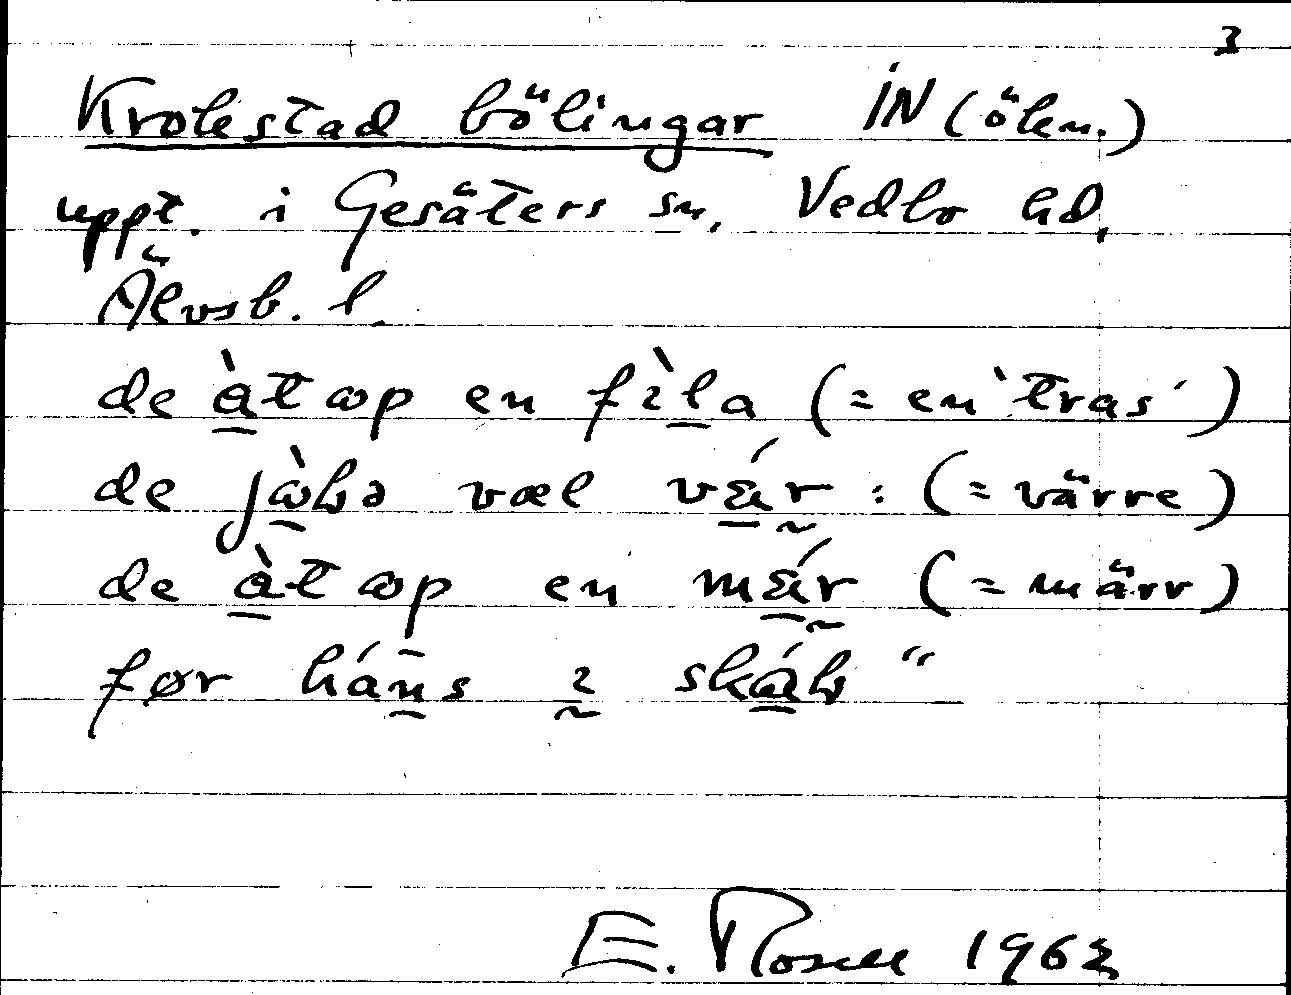 3
Krokstad bölingar IN (ökn.)
uppt. i Gesäters sn, Vedbo hd,
Älvsb. l.
de àt op en fìla (= en 'tras')
de væl vǽr : (= värre)
de àt op en mǽr (= märr)
før háns i
E. Rosell 1962